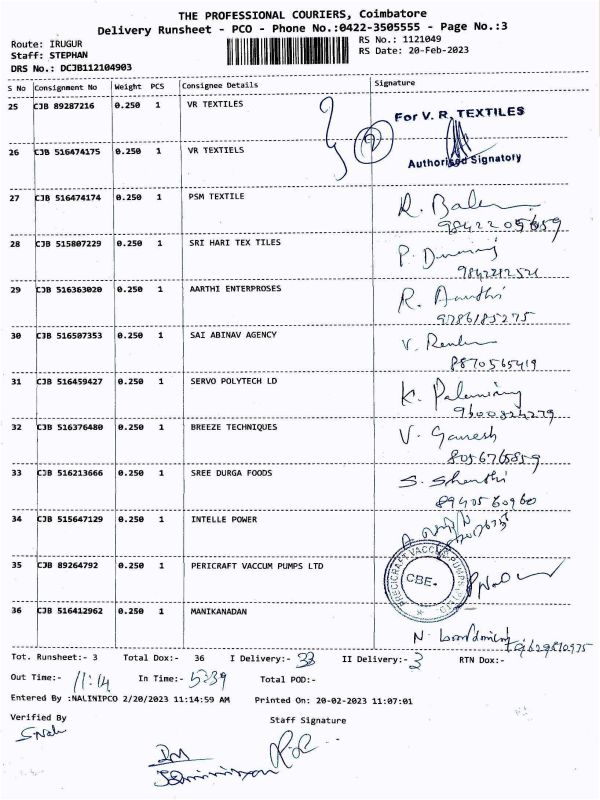 THE PROFESSIONAL COURIERS, Coimbatore
Delivery Runsheet - PCO - Phone No.:0422-3505555 - Page No.:3
Route: IRUGUR
RS No.: 1121049
Staff: STEPHAN
RS Date: 20-Feb-2023
DRS No.: DCJB112104903
S No Consignment No Weight PCS Consignee Details Signature
25 CJB 89287216 0.250 1 VR TEXTILES
For V. R. TEXTILES
26 CJB 516474175 0.250 1 VR TEXTIELS
Authorised Signatory
27 CJB 516474174 0.250 1 PSM TEXTILE
R. Balan
9842205659
28 CJB 515807229 0.250 1 SRI HARI TEX TILES
P.
9842212521
29 CJB 516363020 0.250 1 AARTHI ENTERPROSES
R. Aarthi
9786185275
30 CJB 516507353 0.250 1 SAI ABINAV AGENCY
V.
8870565419
31 CJB 516459427 0.250 1 SERVO POLYTECH LD
K. Palanisamy
9600824279
32 CJB 516376480 0.250 1 BREEZE TECHNIQUES
V. Ganesh
8056765859
33 CJB 516213666 0.250 1 SREE DURGA FOODS
S. Shanthi
8940560960
34 CJB 515647129 0.250 1 INTELLE POWER
35 CJB 89264792 0.250 1 PERICRAFT VACCUM PUMPS LTD
PRECICRAFT VACCUM PUMPS
CBE.
36 CJB 516412962 0.250 1 MANIKANADAN
N.
Tot. Runsheet:- 3 Total Dox:- 36 I Delivery:- 33 II Delivery:- 3 RTN Dox:-
Out Time:- 11:14 In Time:- 5:39 Total POD:-
Entered By :NALINIPCO 2/20/2023 11:14:59 AM Printed On: 20-02-2023 11:07:01
Verified By Staff Signature